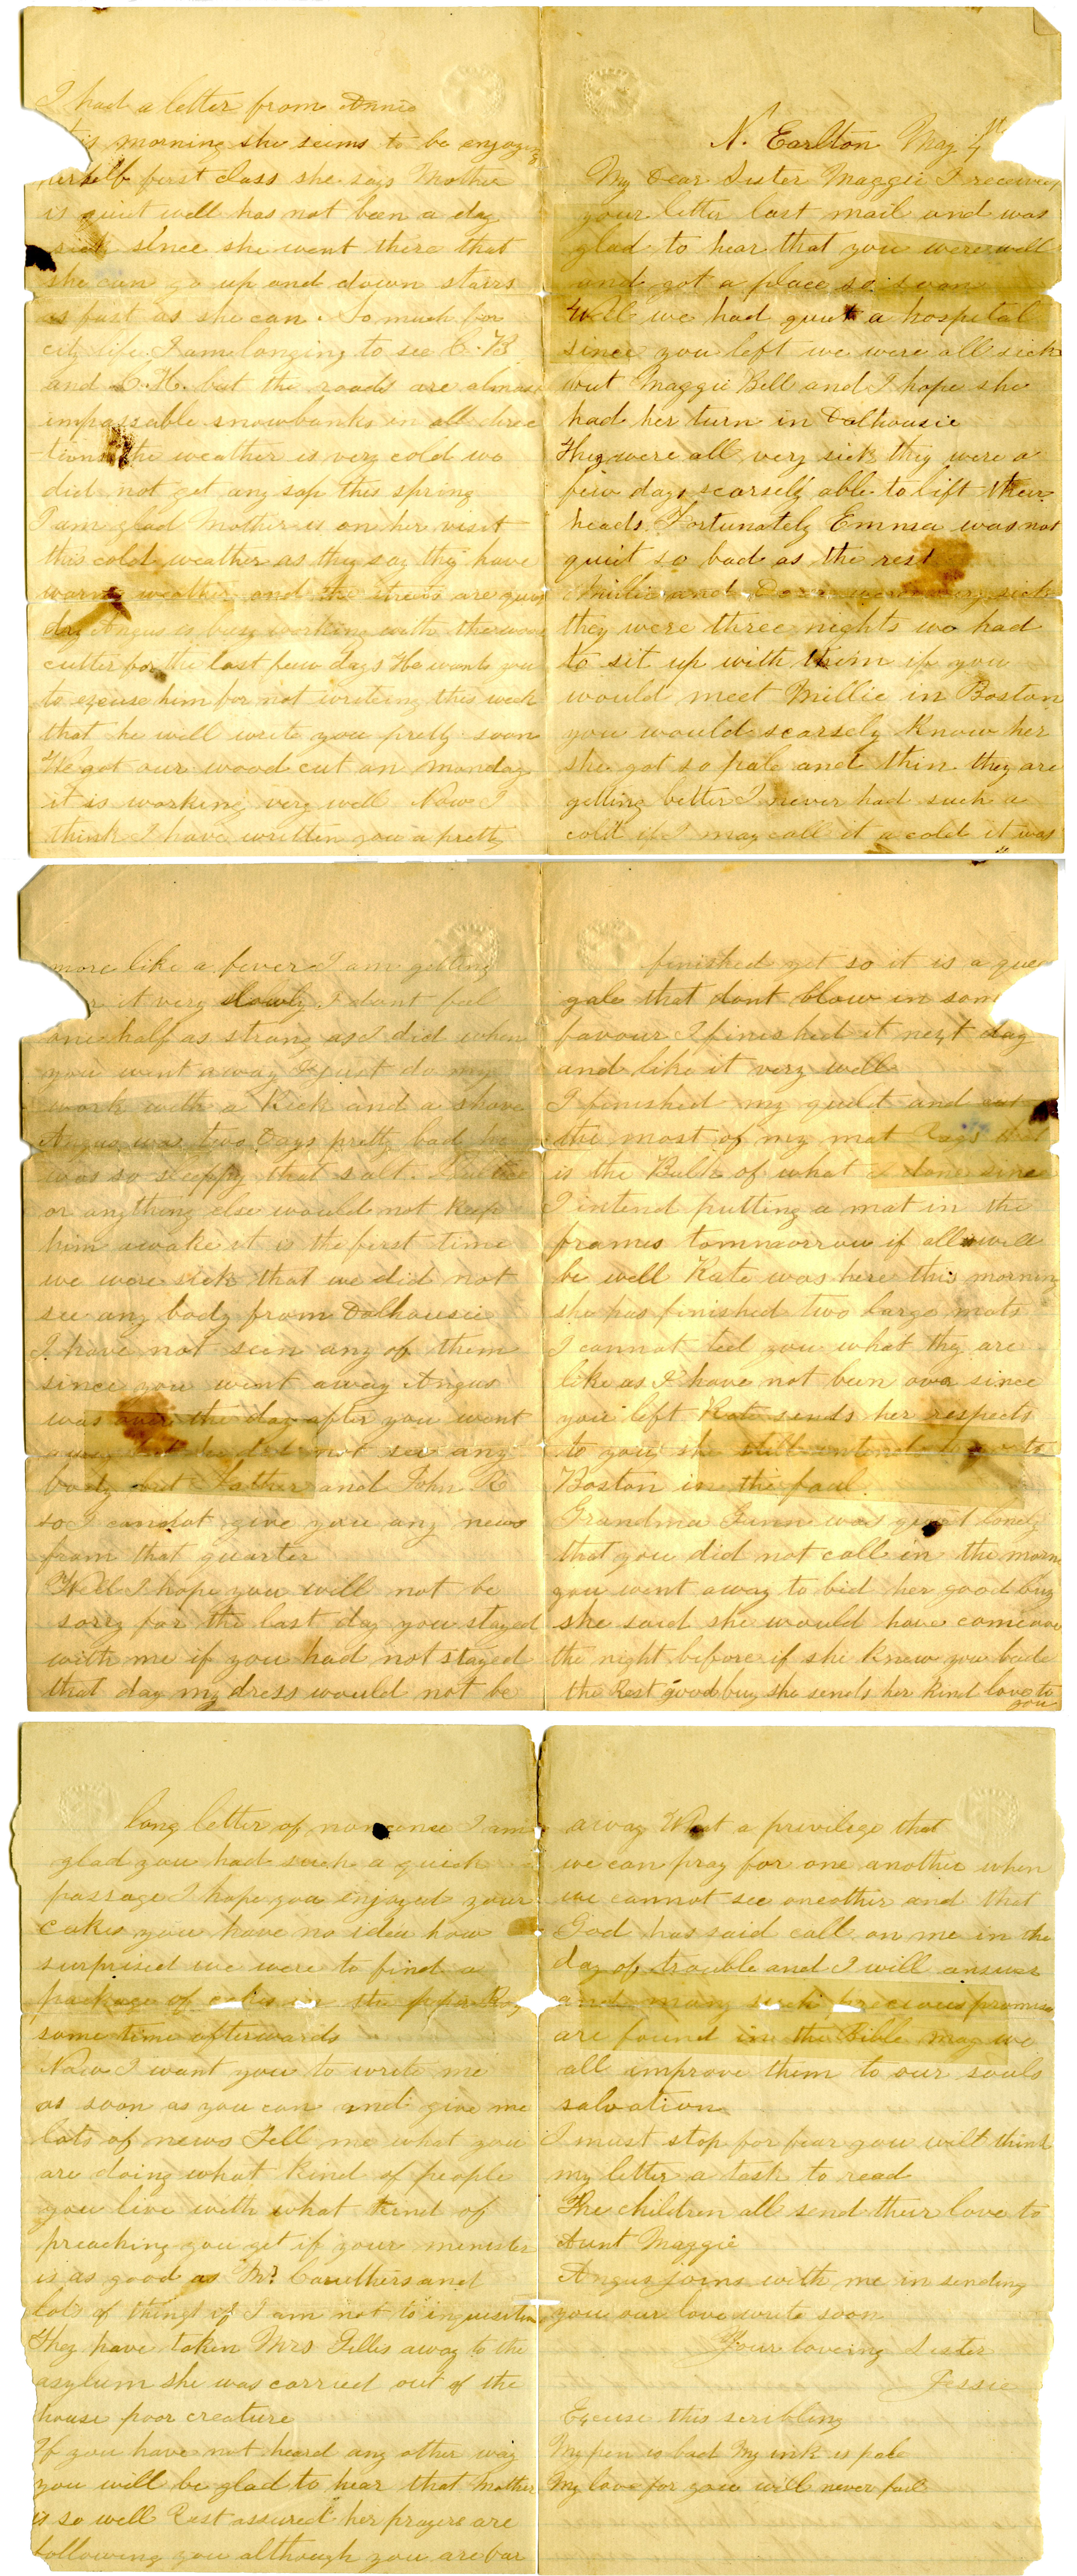 N. Earlton May 4th
My Dear Sister Maggie I received
your letter last mail and was
glad to hear that you were well
and got a place so soon
Well we had quiet a hospital
since you left we were all sick
but Maggie Bell and I hope she
had her turn in Dalhousie
They were all very sick they were a
few days scarsely able to lift their
heads. Fortunately Emma was not
quiet so bad as the rest
Millie and were very sick
they were three nights we had
to sit up with them if you
would meet Millie in Boston
you would scarsely know her
she got so pale and thin they are
getting better I never had such a
cold if I may call it a cold it was
more like a fever I am getting
it very slowly. I dont feel
one half as strong as I did when
you went away I just do my
work with a Kick and a shove
Angus was two Days pretty bad he
was so sleappy that salt.
or anything else would not keep
him awake it is the first time
we were sick that we did not
see any body from Dalhousie
I have not seen any of them
since you went away Angus
was over the day after you went
away but he did not see any
body but Father and John R
so I cannot give you any news
from that quarter
Well I hope you will not be
sorry for the last day you stayed
with me if you had not stayed
that day my dress would not be
finished yet so it is a queer
gale that dont blow in some
favour I finished it next day
and like it very well
I finished my quilt and cut
the most of my mat Rags that
is the Bulk of what I done since
I intend putting a mat in the
frames tommorrow if all will
be well Kate was here this morning
she has finished two large mats
I cannot tell you what thy are
like as I have not been over since
you left Kate sends her respects
to you she still intends to go to
Boston in the faul.
Grandma Gunn was quiet lonely
that you did not call in the morn
you went away to bid her good buy
she said she would have come over
the night before if she knew you bade
the Rest good buy she sends her kind love to
you
I had a letter from Annie
this morning she seims to be enjoying
herself first class she says Mother
is quiet well has not been a day
sick since she went there that
she can go up and down stairs
as fast as she can. So much for
city life. I am longing to see C. B
and C. H. but the roads are almost
impassable snowbanks in all direc
-tions the weather is very cold we
did not get any sap this spring
I am glad Mother is on her visit
this cold weather as they say thy have
warm weather and the streets are quiet
dry Angus is busy working with the wood
cutter for the last few days He wants you
to excuse him for not writeing this week
that he will write you pretty soon
We got our wood cut on Monday
it is working very well Now I
think I have written you a pretty
long letter of nonsence I am
glad you had such a quick
passage I hope you enjoyed your
cakes you have no idea how
surprised we were to find a
package of cakes in the
some time afterwards
Now I want you to write me
as soon as you can and give me
lots of news Tell me what you
are doing what kind of people
you live with what kind of
preaching you get if your menister
is as good as Mr Caruthers and
lots of things if I am not to inquisitive
They have taken Mrs Gillis away to the
asylum she was carried out of the
house poor creature
If you have not heard any other way
you will be glad to hear that Mother
is so well Rest assured her prayers are
following you although you are far
away What a privilege that
we can pray for one another when
we cannot see oneother and that
God has said call on me in the
day of trouble and I will answer
and many such precious promises
are found in the Bible may we
all improve them to our souls
salvation
I must stop for fear you will think
my letter a task to read
The children all send their love to
Aunt Maggie
Angus joins with me in sending
you our love write soon
Your loveing Sister
Jessie
Excuse this scribling
My pen is bad My ink is pale
My love for you will never fail